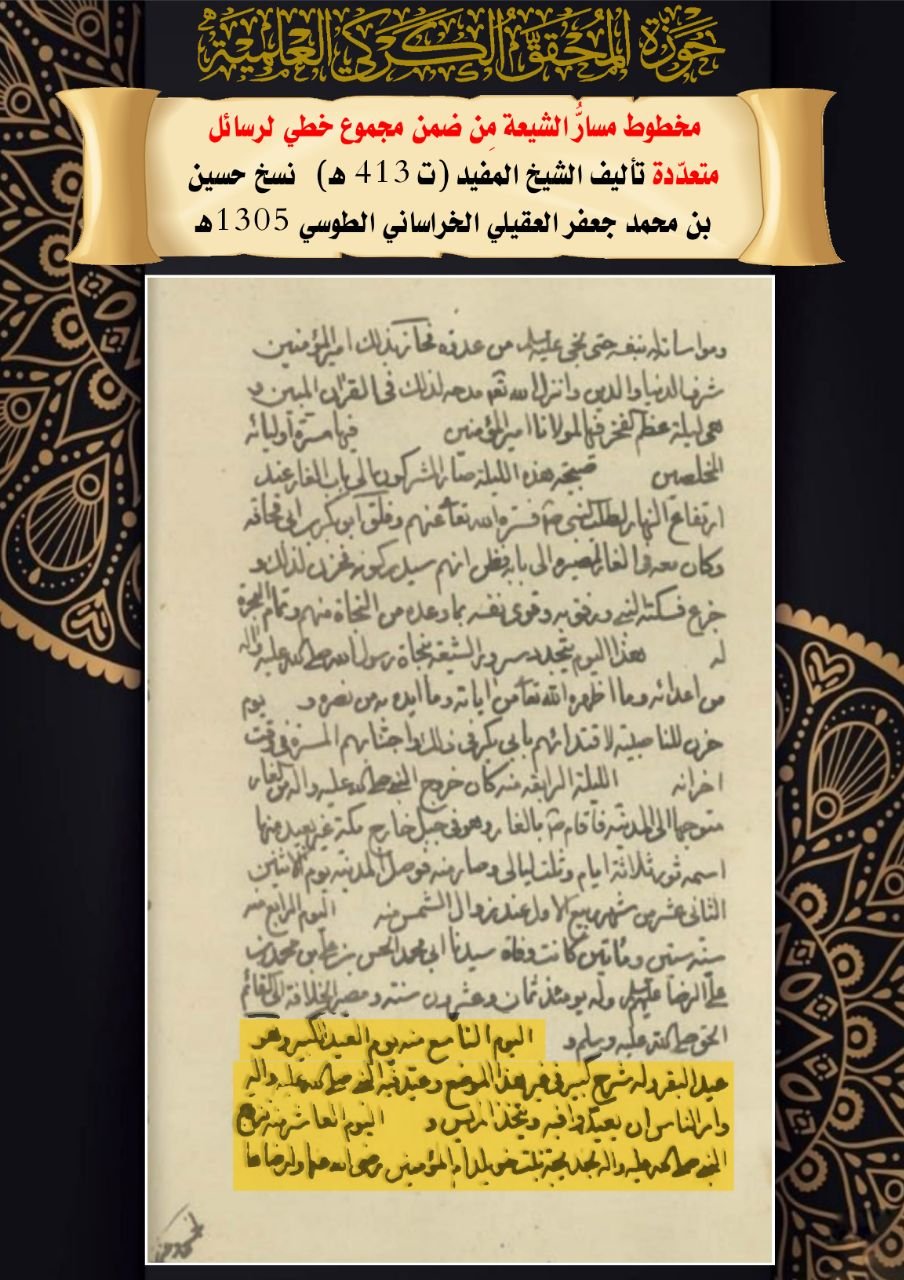 حَوزَة المُحَقِّق الكَرَكي العِلميَّة
مخطوط مسارُّ الشيعة مِن ضمن مجموع خطي لرسائل
متعدّدة تأليف الشيخ المفيد (ت 413 هـ) نسخ حسين
بن محمد جعفر العقيلي الخراساني الطوسي 1305هـ
ومواساته بنفسه حتى نجى عليه السلام من عدوه فحاز بذلك امير المؤمنين
شرف الدنيا والدين وانزل الله تعه مدحه لذلك في القرآن المبين و
هى ليلة عظم الفخر فيها لمولانا امير المؤمنين فيها مسرة اوليائه
المخلصين صبيحة هذه الليلة صار المشركون الى باب الغار عند
ارتفاع النهار لطلب النبى ص فستره الله تعا عنهم وقلق ابو بكر بن ابى قحافه
وكان معه فى الغار لمصيرهم الى بابه وظن انهم سيدركونه فحزن لذلك و
جزع فسكته النبى ورفق به وقوى نفسه بما وعده من النجاة منهم وتمام الهجرة
له هذا اليوم يتجدد سرور الشيعة بنجاة رسول الله صلى الله عليه وآله
من اعدائه وما اظهره الله تعا من اياته وما ايده به من نصره و يوم
حزن للناصبية لاقتدائهم بابى بكر فى ذلك واجتنابهم المسرة فى وقت
احزانه الليلة الرابعة منه كان خروج النبى صلى الله عليه وآله من الغار
متوجها الى المدينة فاقام ص بالغار وهو فى جبل خارج مكة غير بعيد منها
اسمه ثور ثلاثة ايام وثلث ليالى وصار منه فوصل المدينة يوم الاثنين
الثانى عشر من شهر ربيع الاول عند زوال الشمس منه اليوم الرابع منه
سنة ستين ومأتين كانت وفاة سيدنا ابى محمد الحسن بن على بن محمد بن
على الرضا عليهم السلام وله يومئذ ثمان وعشرون سنة ومصير الخلافة الى القائم
الحق صلى الله عليه وسلم و اليوم التاسع منه يوم العيد الكبير وهو
عيد البقر وله شرح كبير فى غير هذا الموضع وعيد فيه النبى صلى الله عليه وآله
وامر الناس ان يعيدوا فيه ويتخذ المريس و اليوم العاشر منه تزوج
النبى صلى الله عليه وآله بخديجة بنت خويلد ام المؤمنين رضى الله عنها